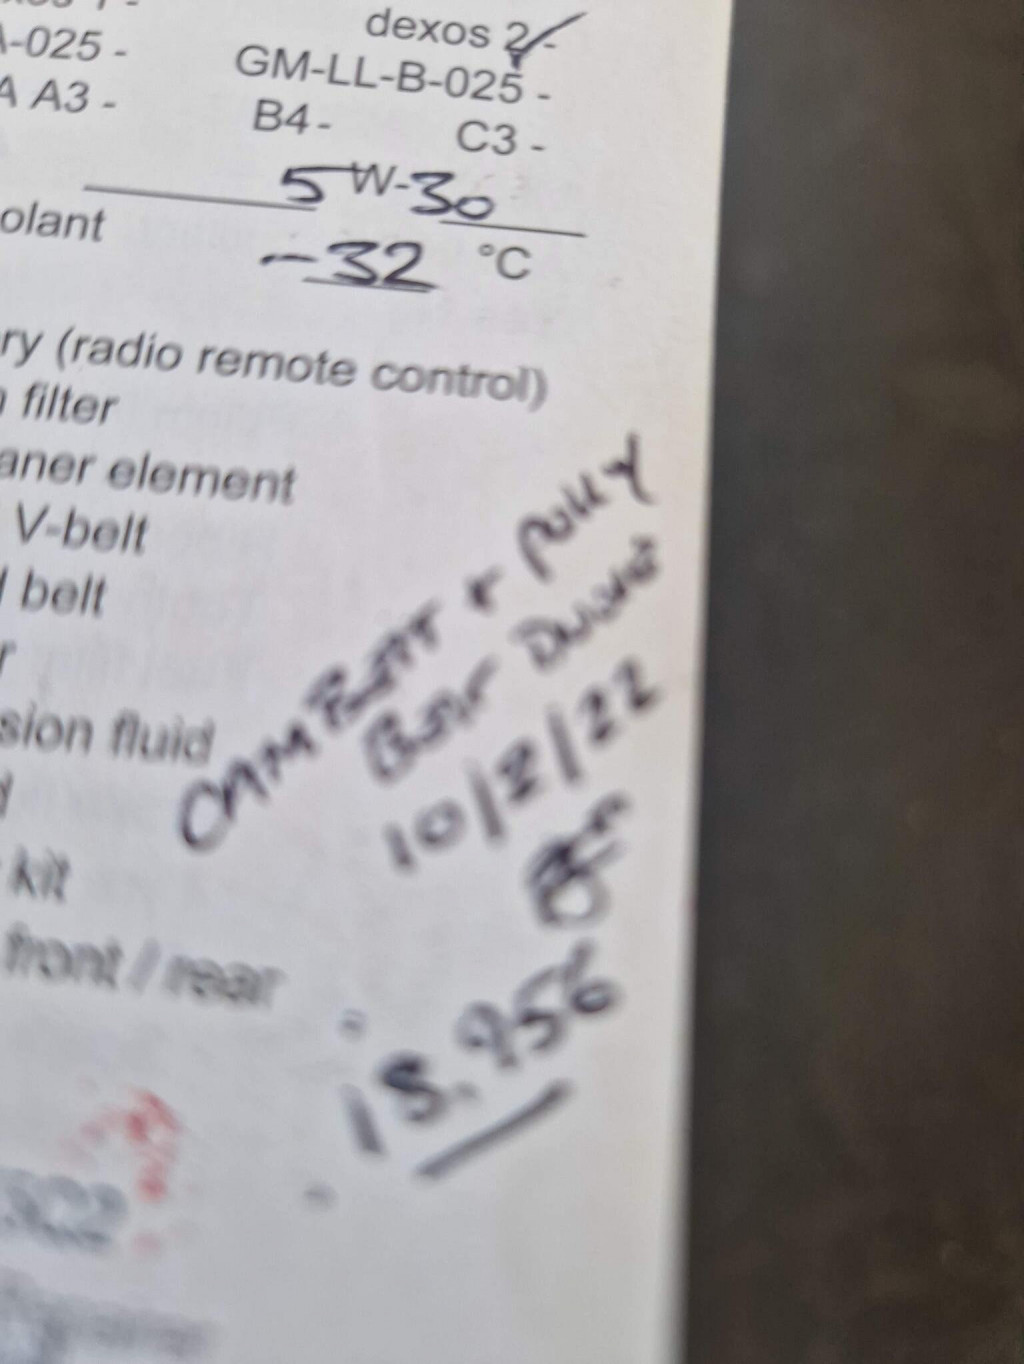 dexos 2 -
A-025 -
GM-LL-B-025 -
A A3 -
B4 -
C3 -
5W-30
olant
-32 °C
ry (radio remote control)
filter
aner element
V-belt
belt
sion fluid
kit
front / rear
CAM BELT + PULLY
BELT
10/2/22
18,956